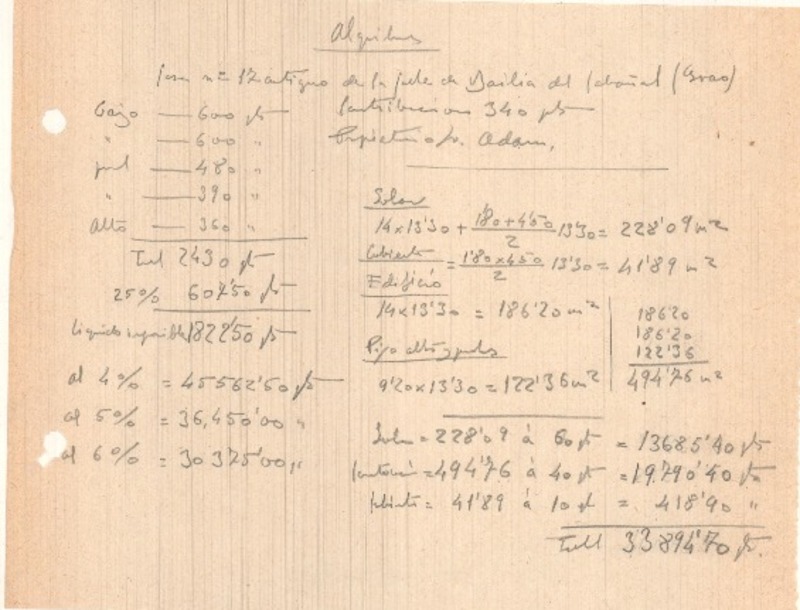 Alquileres
Casa nº 12 antiguo de la calle de Bailia del Cabañal (Grao)
Contribucion 340 pts
Propietario Sr. Adam.
Bajo — 600 pts
" — 600 "
pral — 480 "
— 390 "
Alto — 360 "
Total 2430 pts
25% 607'50 pts
Liquido imponible 1822'50 pts
al 4% = 45562'50 pts
al 5% = 36,450'00 "
al 6% = 30375'00 "
Solar
14x13'30 + 1'80+4'50 / 2 13'30 = 228'09 m2
Cubierto = 1'80x4'50 / 2 13'30 = 41'89 m2
Edificio
14x13'30 = 186'20 m2
Piso alto y
9'20x13'30 = 122'36 m2
186'20
186'20
122'36
494'76 m2
Solar = 228'09 á 60 pts = 13685'40 pts
= 494'76 á 40 pts = 19.790'40 pts
Cubierto = 41'89 á 10 pts = 418'90 "
Total 33894'70 pts.